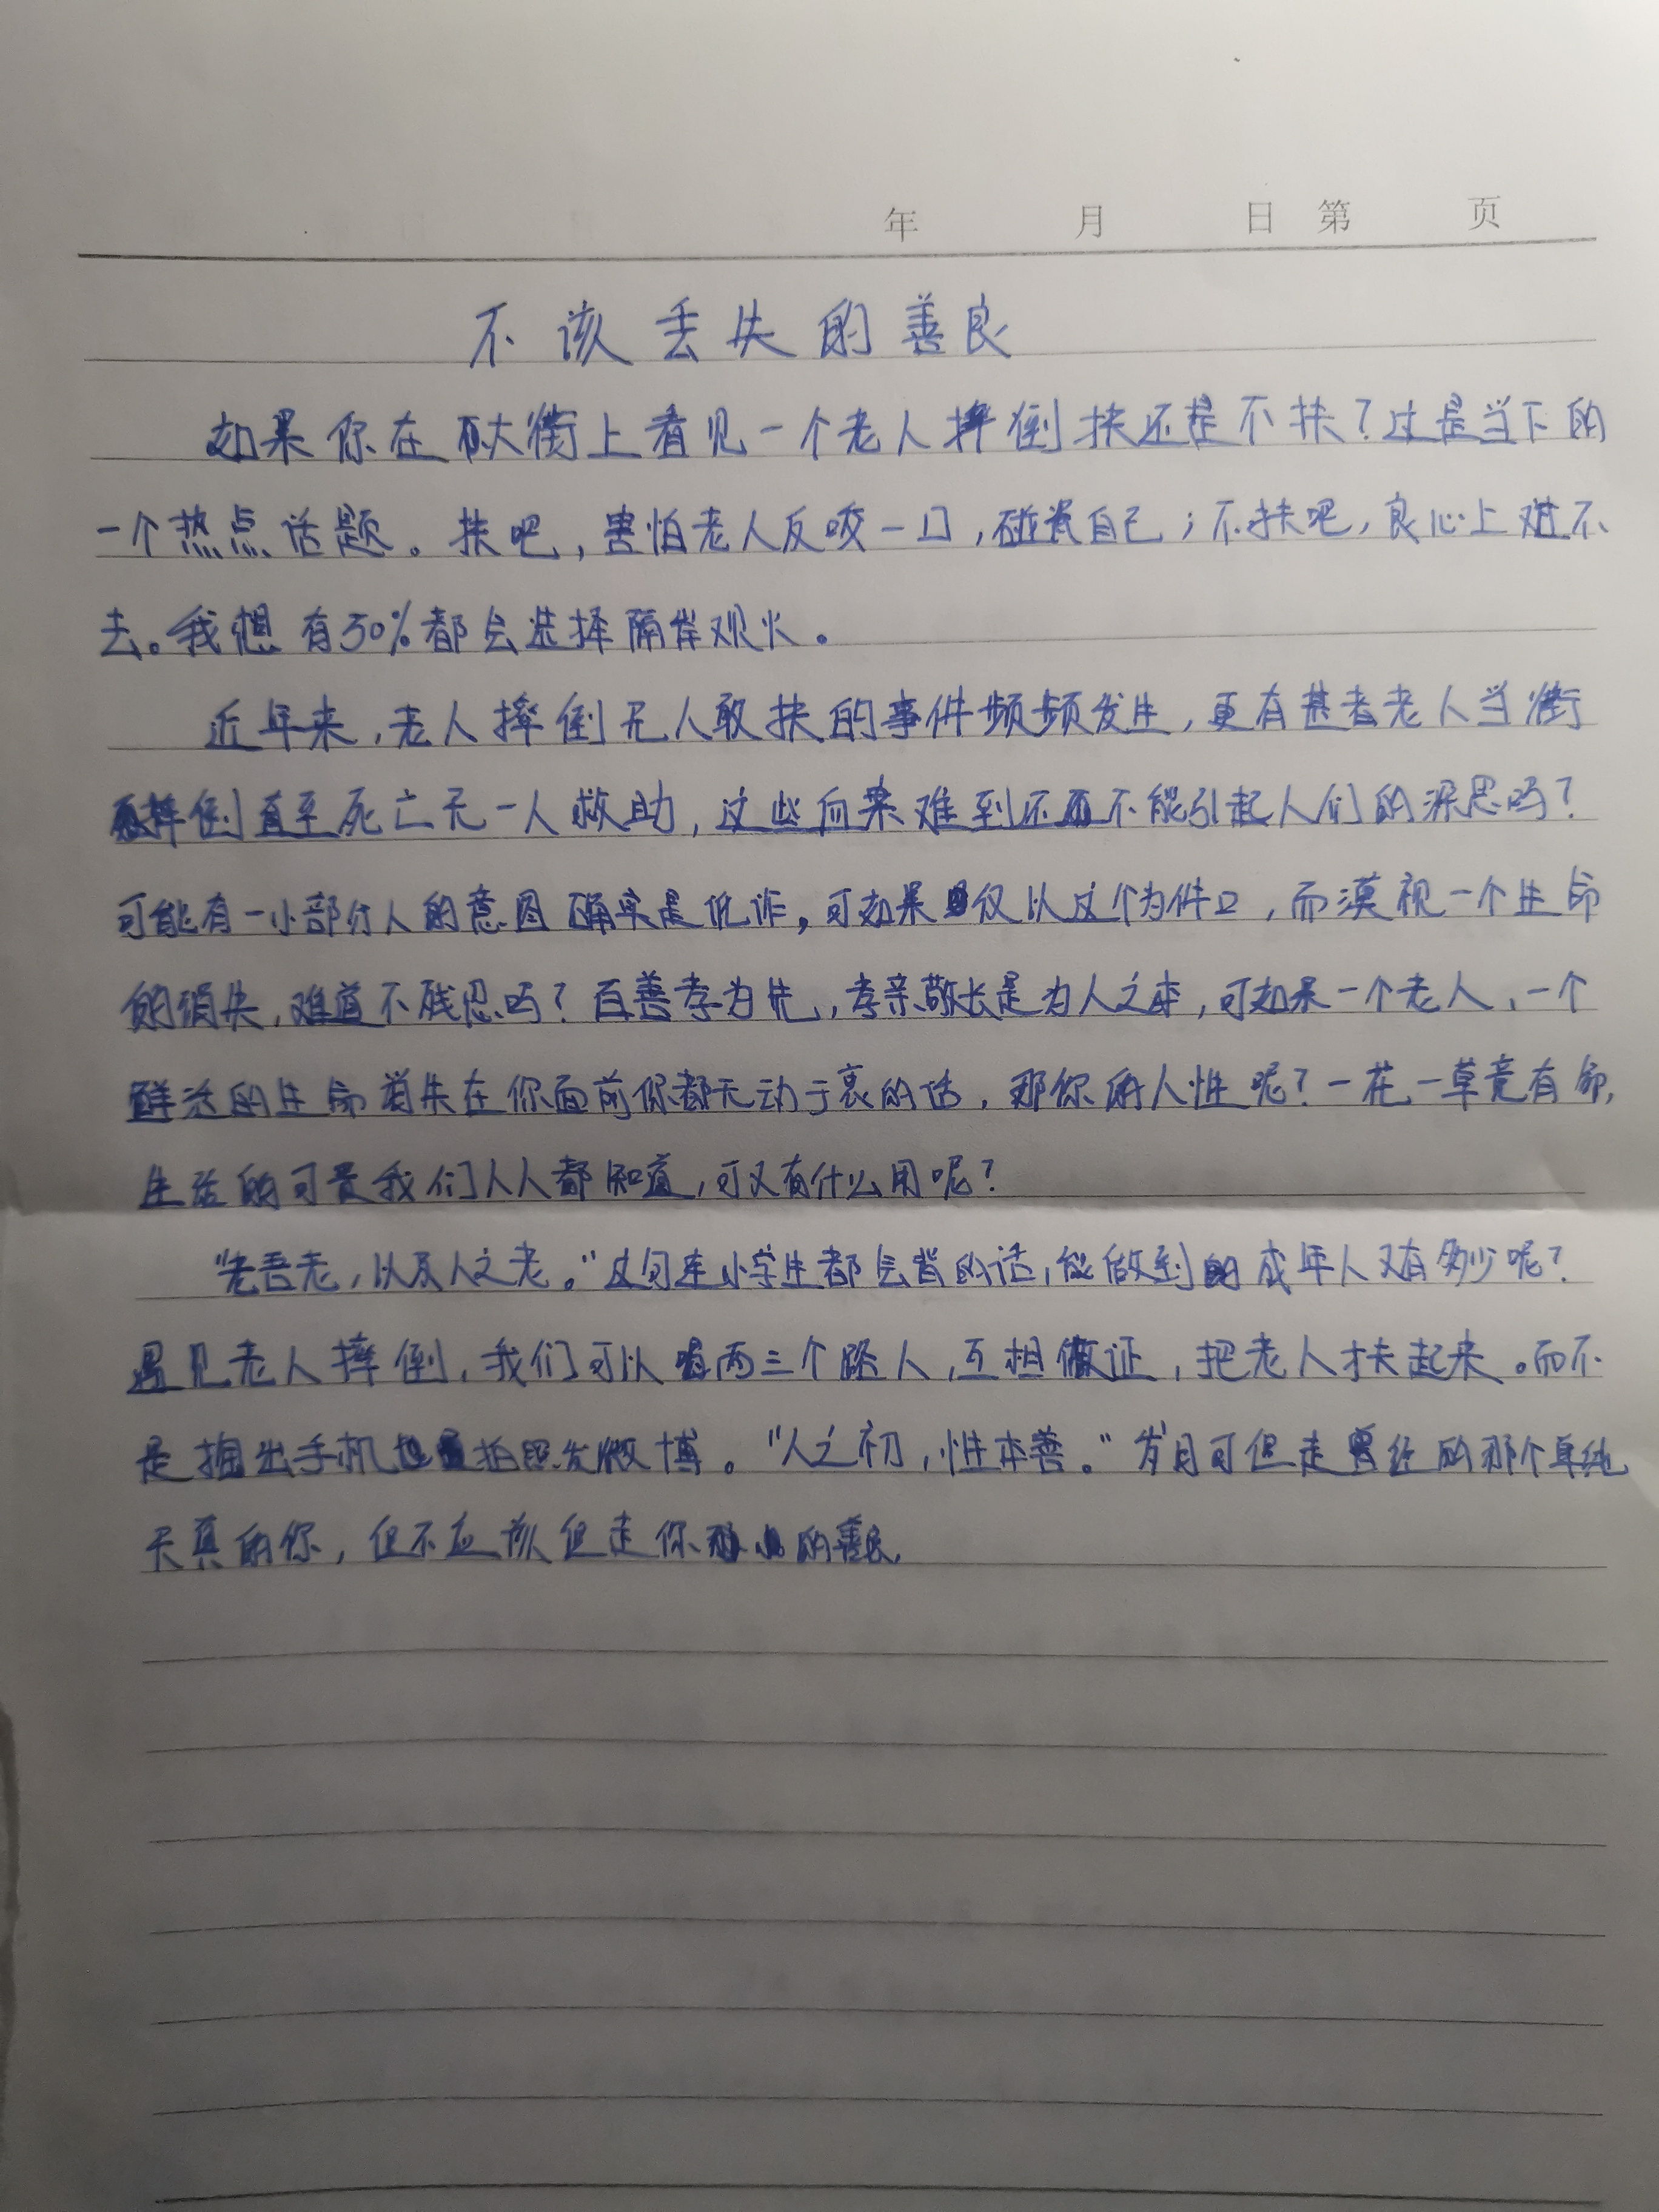 年 月 日 第 页
不该丢失的善良
如果你在大街上看见一个老人摔倒扶还是不扶?这是当下的
一个热点话题。扶吧,害怕老人反咬一口,碰瓷自己;不扶吧,良心上过不
去。我想有50%都会选择隔岸观火。
近年来,老人摔倒无人敢扶的事件频频发生,更有甚者老人当街
摔倒直至死亡无一人救助,这些后果难到还不能引起人们的深思吗?
可能有一小部分人的意图确实是讹诈,可如果仅以这个为借口,而漠视一个生命
的消失,难道不残忍吗?百善孝为先,孝亲敬长是为人之本,可如果一个老人、一个
鲜活的生命消失在你面前你都无动于衷的话,那你的人性呢?一花一草竟有命,
生活的可贵我们人人都知道,可又有什么用呢?
“老吾老,以及人之老。”这句连小学生都会背的话,能做到的成年人又有多少呢?
遇见老人摔倒,我们可以喊两三个路人,互相做证,把老人扶起来。而不
是掏出手机拍照发微博。“人之初,性本善。”岁月可偷走曾经的那个单纯
天真的你,但不应该偷走你的善良.